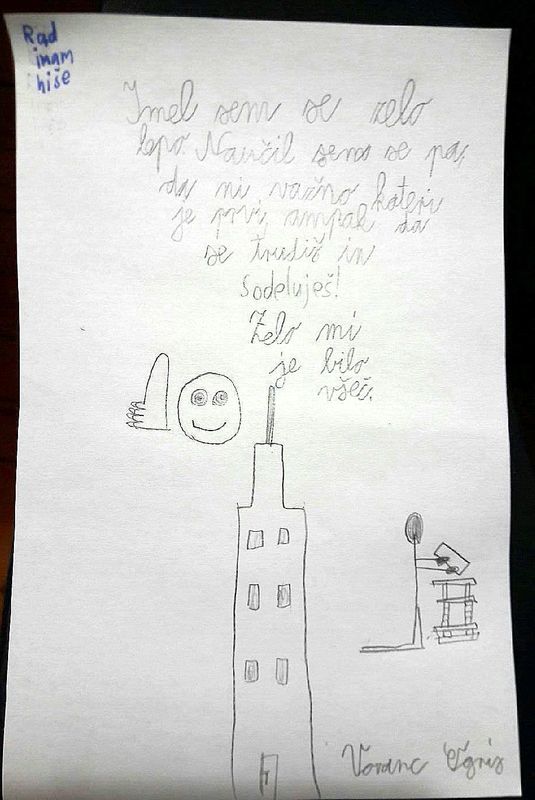 Rad
imam
hiše
Imel sem se zelo
lepo. Naučil sem se pa,
da ni važno kateri
je prvi, ampak da
se trudiš in
sodeluješ!
Zelo mi
je bilo
všeč.
Voranc Ogris